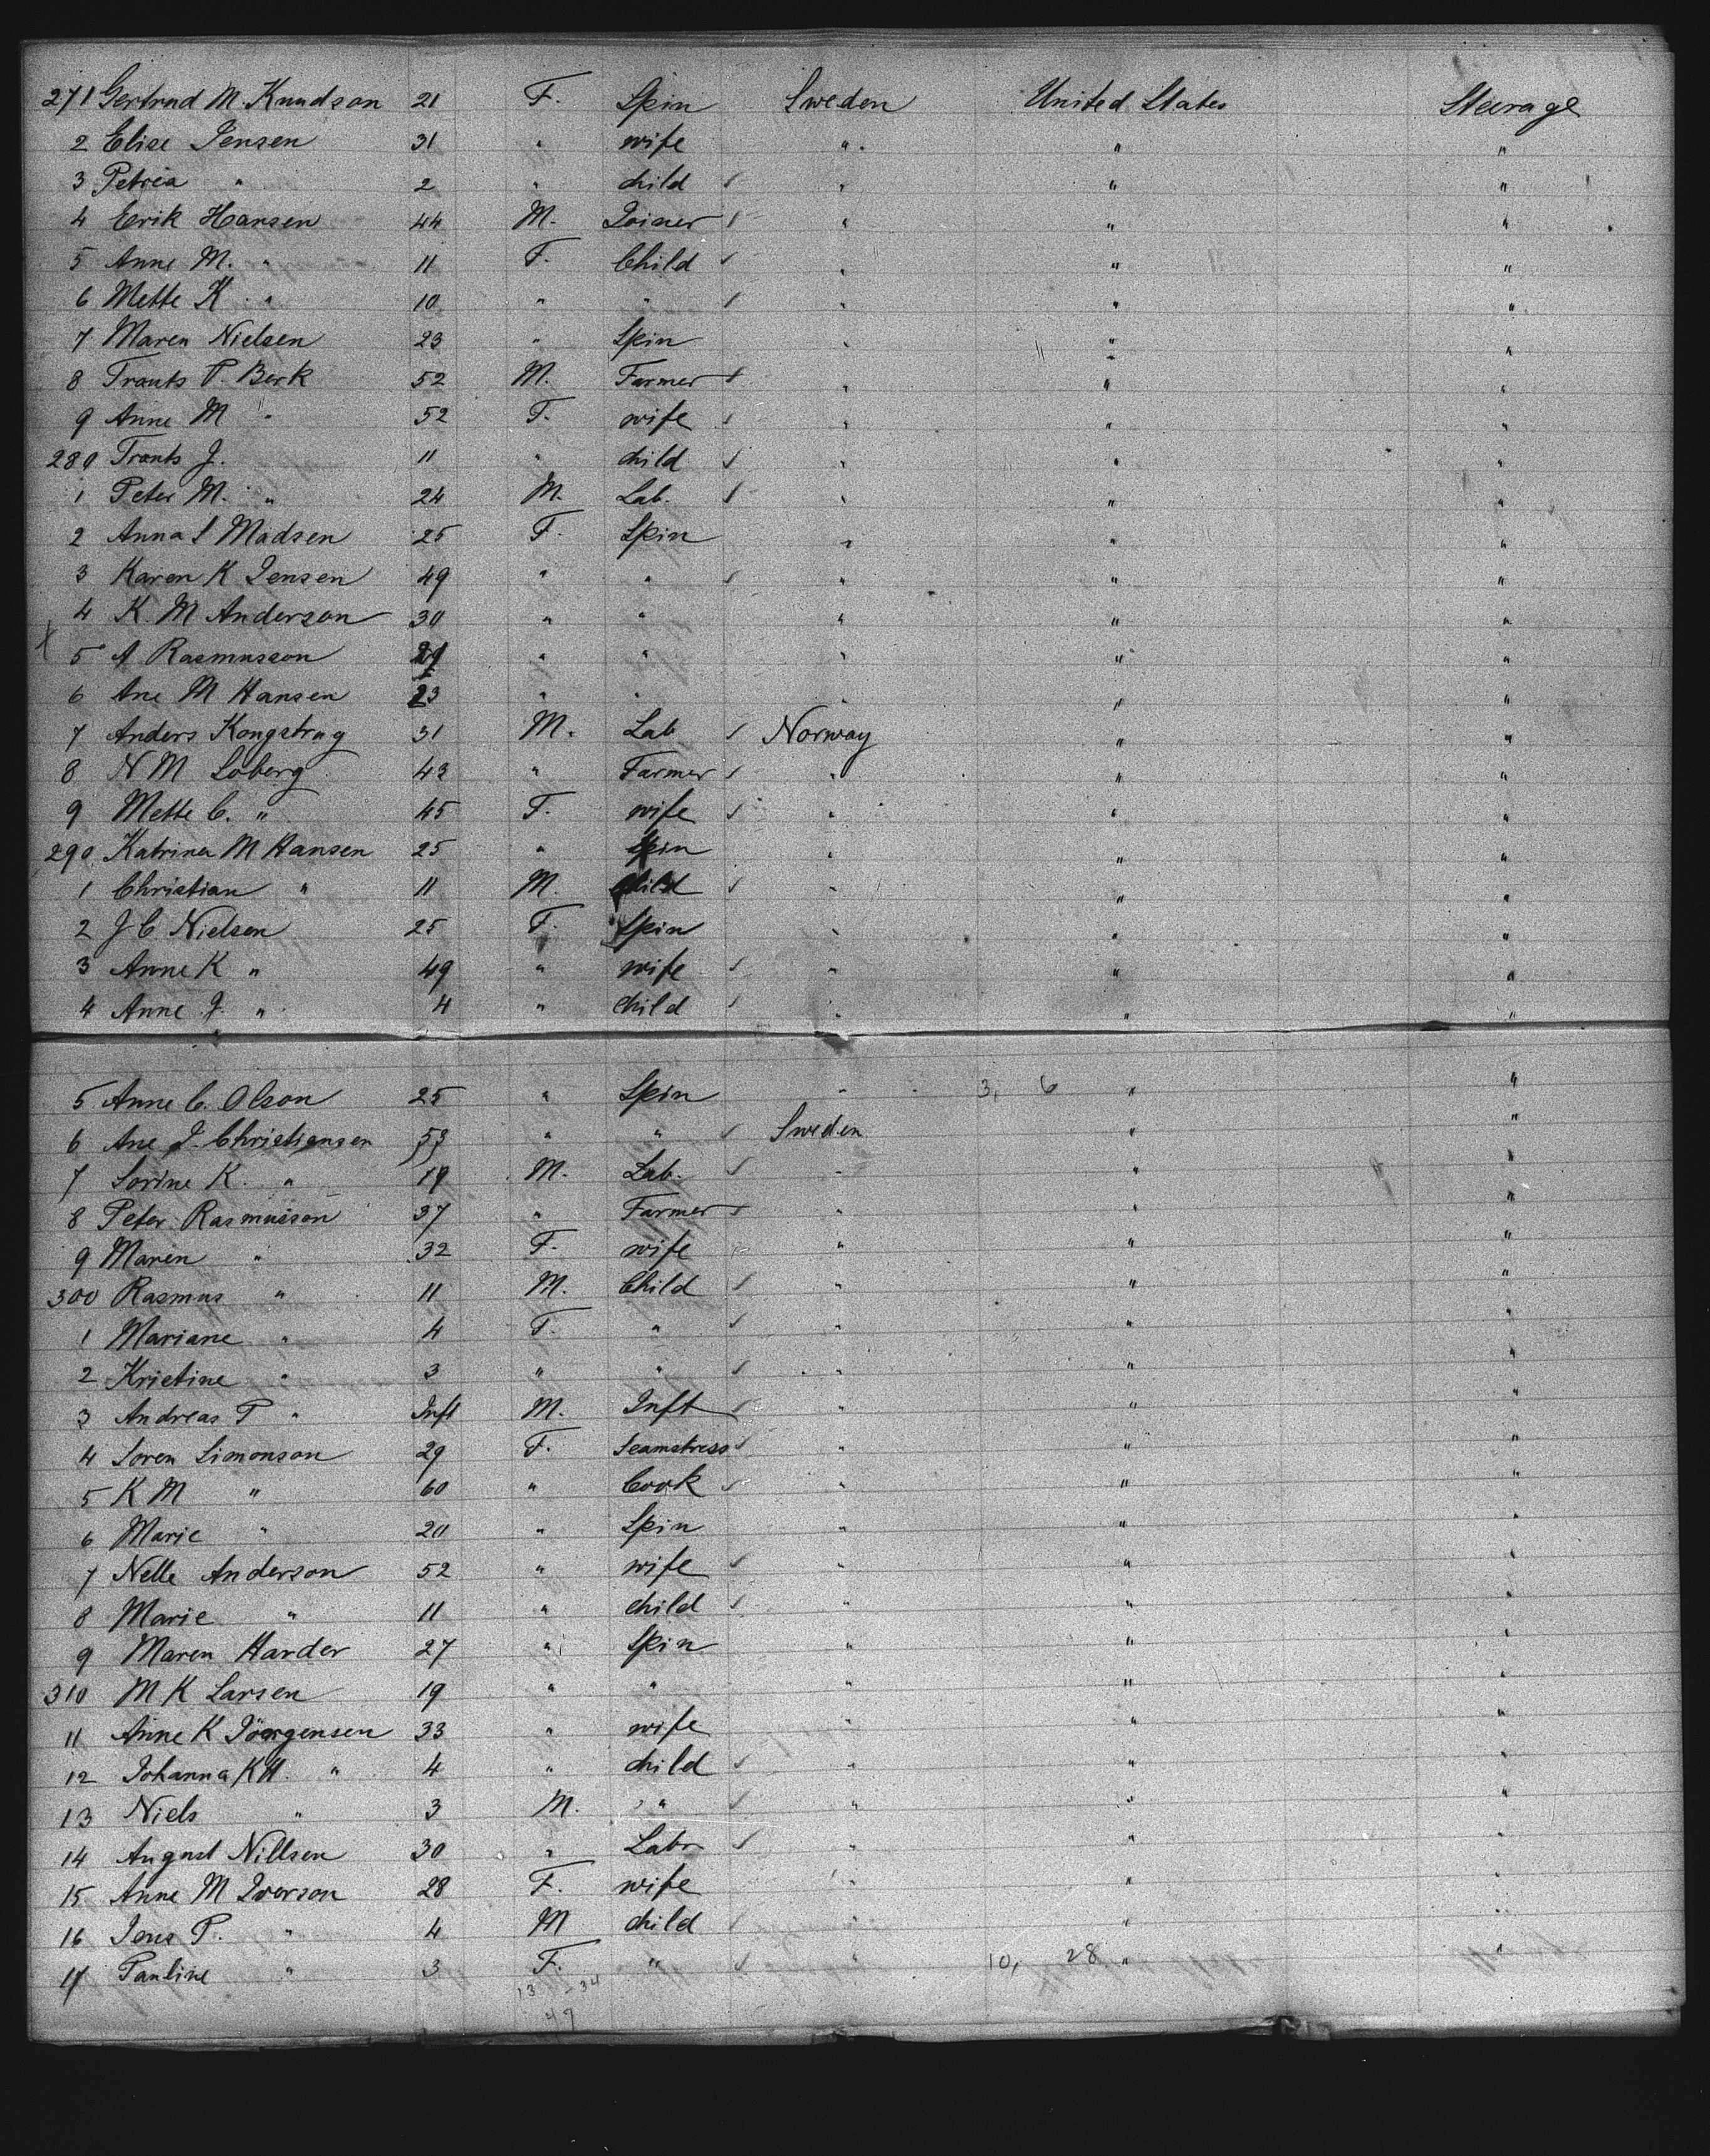 271 Gertrud M. Knudson 21 F. Spin Sweden United States Steerage
2 Elise Jensen 31 " wife " " "
3 Petrea " 2 " child " " "
4 Erik Hansen 44 M. Joiner " " "
5 Anne M. " 11 F. Child " " "
6 Mette K " 10 " " " " "
7 Maren Nielsen 23 " Spin " " "
8 Trants P. Berk 52 M. Farmer " " "
9 Anne M " 52 F. wife " " "
280 Trants J. 11 " child " " "
1 Peter M. " 24 M. Lab. " " "
2 Anna S Madsen 25 F. Spin " " "
3 Karen K Jensen 49 " " " " "
4 K. M Anderson 30 " " " " "
X 5 A Rasmusson " " " " "
6 Ane M Hansen 23 " " " " "
7 Anders Kongstrug 31 M. Lab Norway " "
8 N M Loberg 43 " Farmer " " "
9 Mette C. " 45 F. wife " " "
290 Katrina M Hansen 25 " Spin " " "
1 Christian " 11 M. child " " "
2 J C. Nielsen 25 F. Spin " " "
3 Anne K " 49 " wife " " "
4 Anne J. " 4 " child " " "
5 Anne C. Olson 25 " Spin " 3, 6 " "
6 Ane J. Christiansen 53 " " Sweden " "
7 Sorine K. " 19 M. Lab. " " "
8 Peter Rasmusson 37 " Farmer " " "
9 Maren " 32 F. wife " " "
300 Rasmus " 11 M. Child " " "
1 Mariane " 4 F. " " " "
2 Kristine " 3 " " " " "
3 Andreas P " Inft M. Inft " " "
4 Soren Simonson 29 F. Seamstress " " "
5 K M " 60 " Cook " " "
6 Marie " 20 " Spin " " "
7 Nelle Anderson 52 " wife " " "
8 Marie " 11 " child " " "
9 Maren Harder 27 " Spin " " "
310 M K Larsen 19 " " " " "
11 Anne K Jörgensen 33 " wife " " "
12 Johanna K H. " 4 " child " " "
13 Niels " 3 M. " " " "
14 August Nillsen 30 " Labr " " "
15 Anne M Iverson 28 F. wife " " "
16 Jens P. " 4 M child " " "
17 Pauline " 3 F. " " 10, 28 " "
13 - 34
47